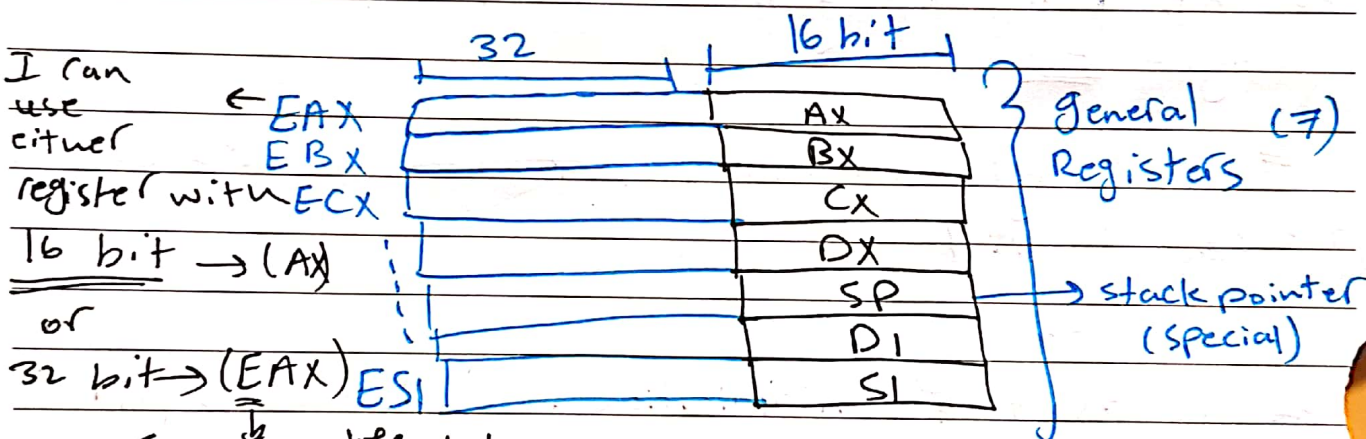 32 16 bit
I can
use
either
register with
16 bit → (AX)
or
32 bit → (EAX)
← EAX
EBX
ECX
ESI
AX
BX
CX
DX
SP
DI
SI
general (7)
Registers
→ stack pointer
(special)